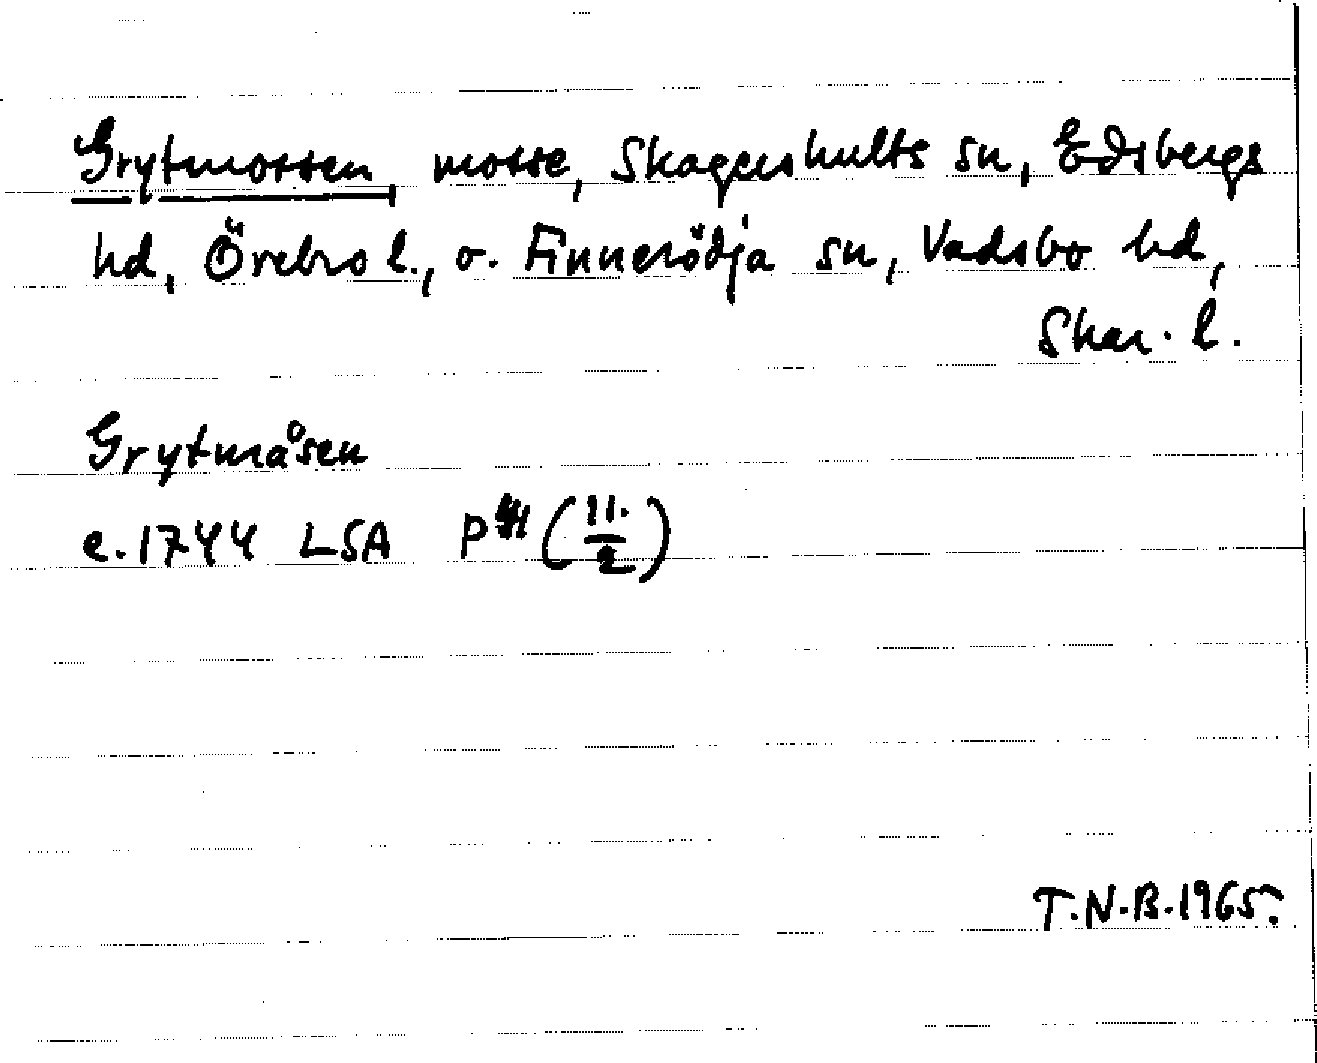 Grytmossen, mosse, Skagershults sn, Edsbergs
hd, Örebro l., o. Finnerödja sn, Vadsbo hd,
Skar. l.
Grytmåsen
c. 1744 LSA P (11./2)
T.N.B. 1965.